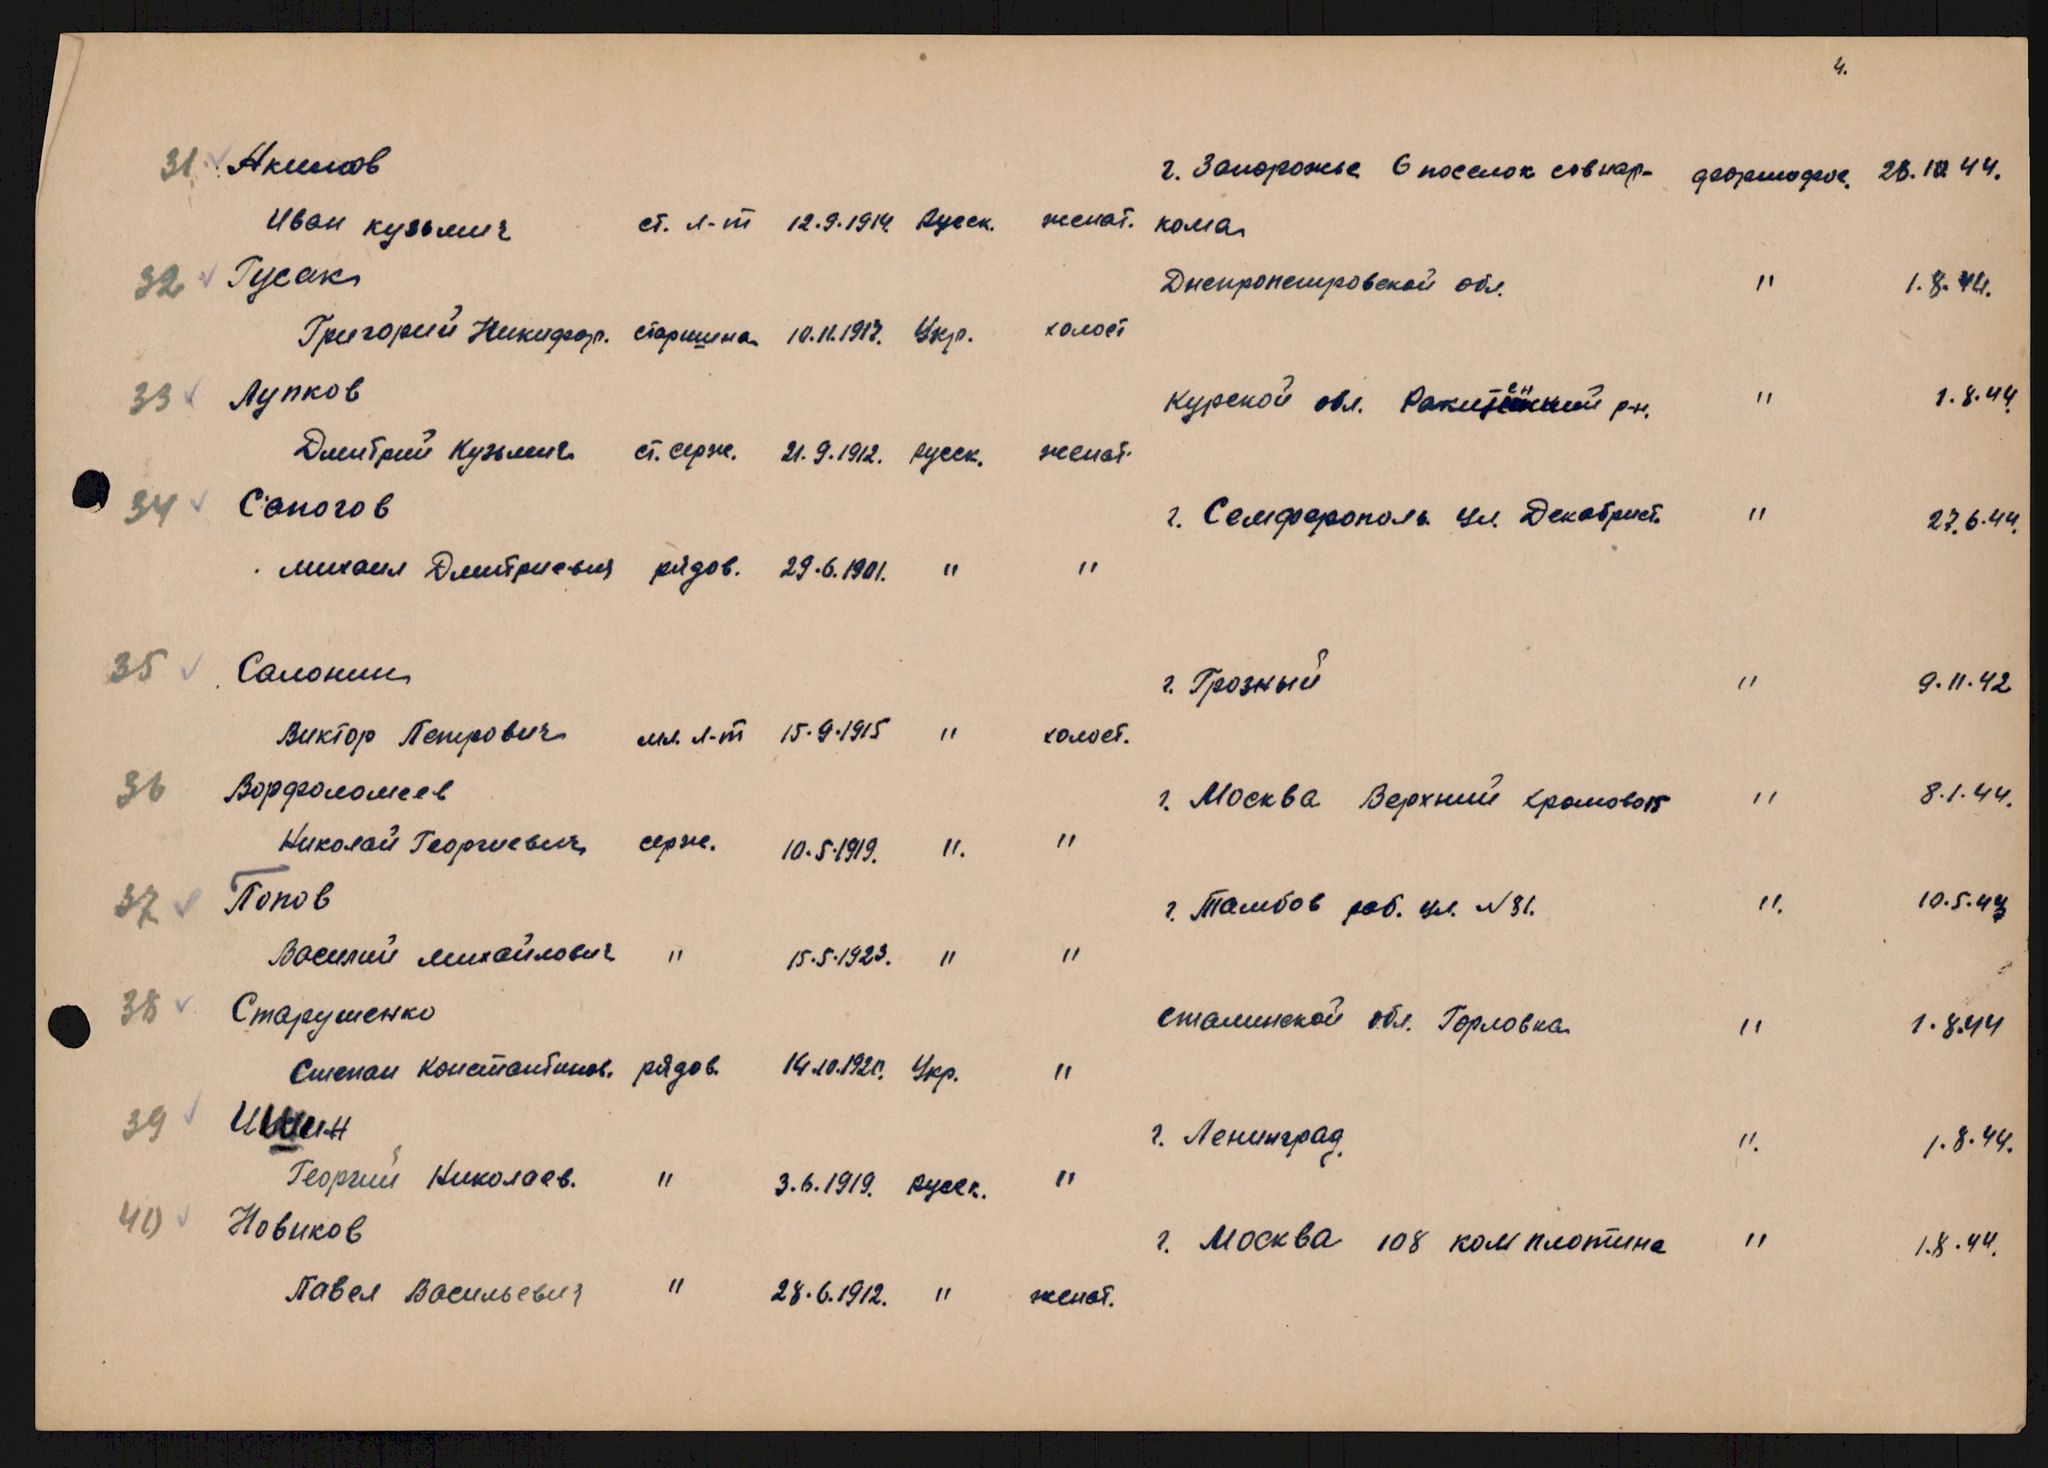 4.
31 Акимов г. Запорожье 6 поселок совнар- 28.10 44.
Иван кузьмич ст. л-т 12.9.1914. Русск. женат. кома
32 Гусак Днепропетровской обл. " 1.8.44.
Григорий Никифор. старшина 10.11.1917. Укр. холост
33 Лупков Курской обл. р-н. " 1.8.44.
Дмитрий Кузьмич ст. серж. 21.9.1912. русск. женат.
34 Сапогов г. Семферополь ул. Декабрист. " 27.6.44.
михаил Дмитриевич рядов. 29.6.1901. " "
35 Салонин г. Грозный " 9.11.42
Виктор Петрович мл. л-т 15.9.1915 " холост.
36 Ворфоломеев г. Москва Верхний " 8.1.44.
Николай Георгиевич серж. 10.5.1919. ". "
37 Попов г. Тамбов раб. ул. №31. ". 10.5.43
Василий михайлович " 15.5.1923. " "
38 Старушенко сталинской обл. Горловка " 1.8.44
Степан Константинов. рядов. Укр. "
39 г. Ленинград. ". 1.8.44.
Георгий Николаев. " 3.6.1919. русск. "
40 Новиков г. Москва 108 ком плотина " 1.8.44.
Павел Васильевич " 28.6.1912. " женат.